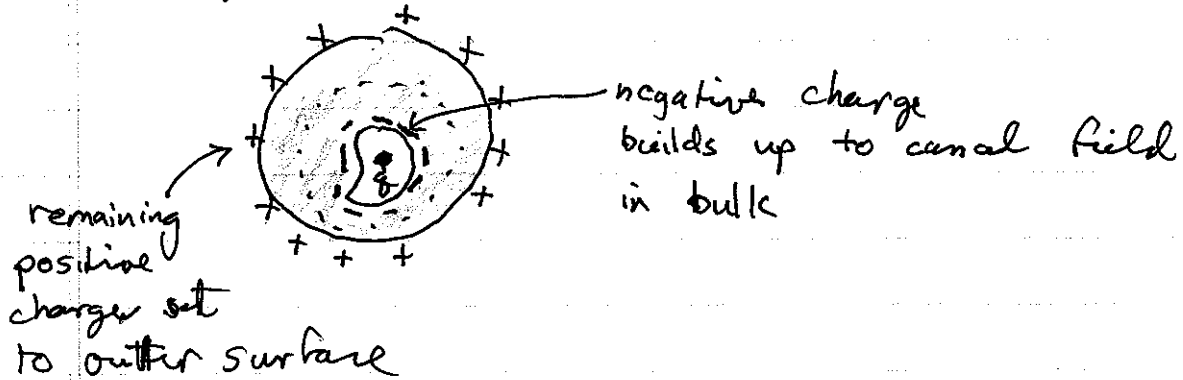 negative charge
builds up to cancel field
in bulk
q
remaining
positive
charges set
to outter surface